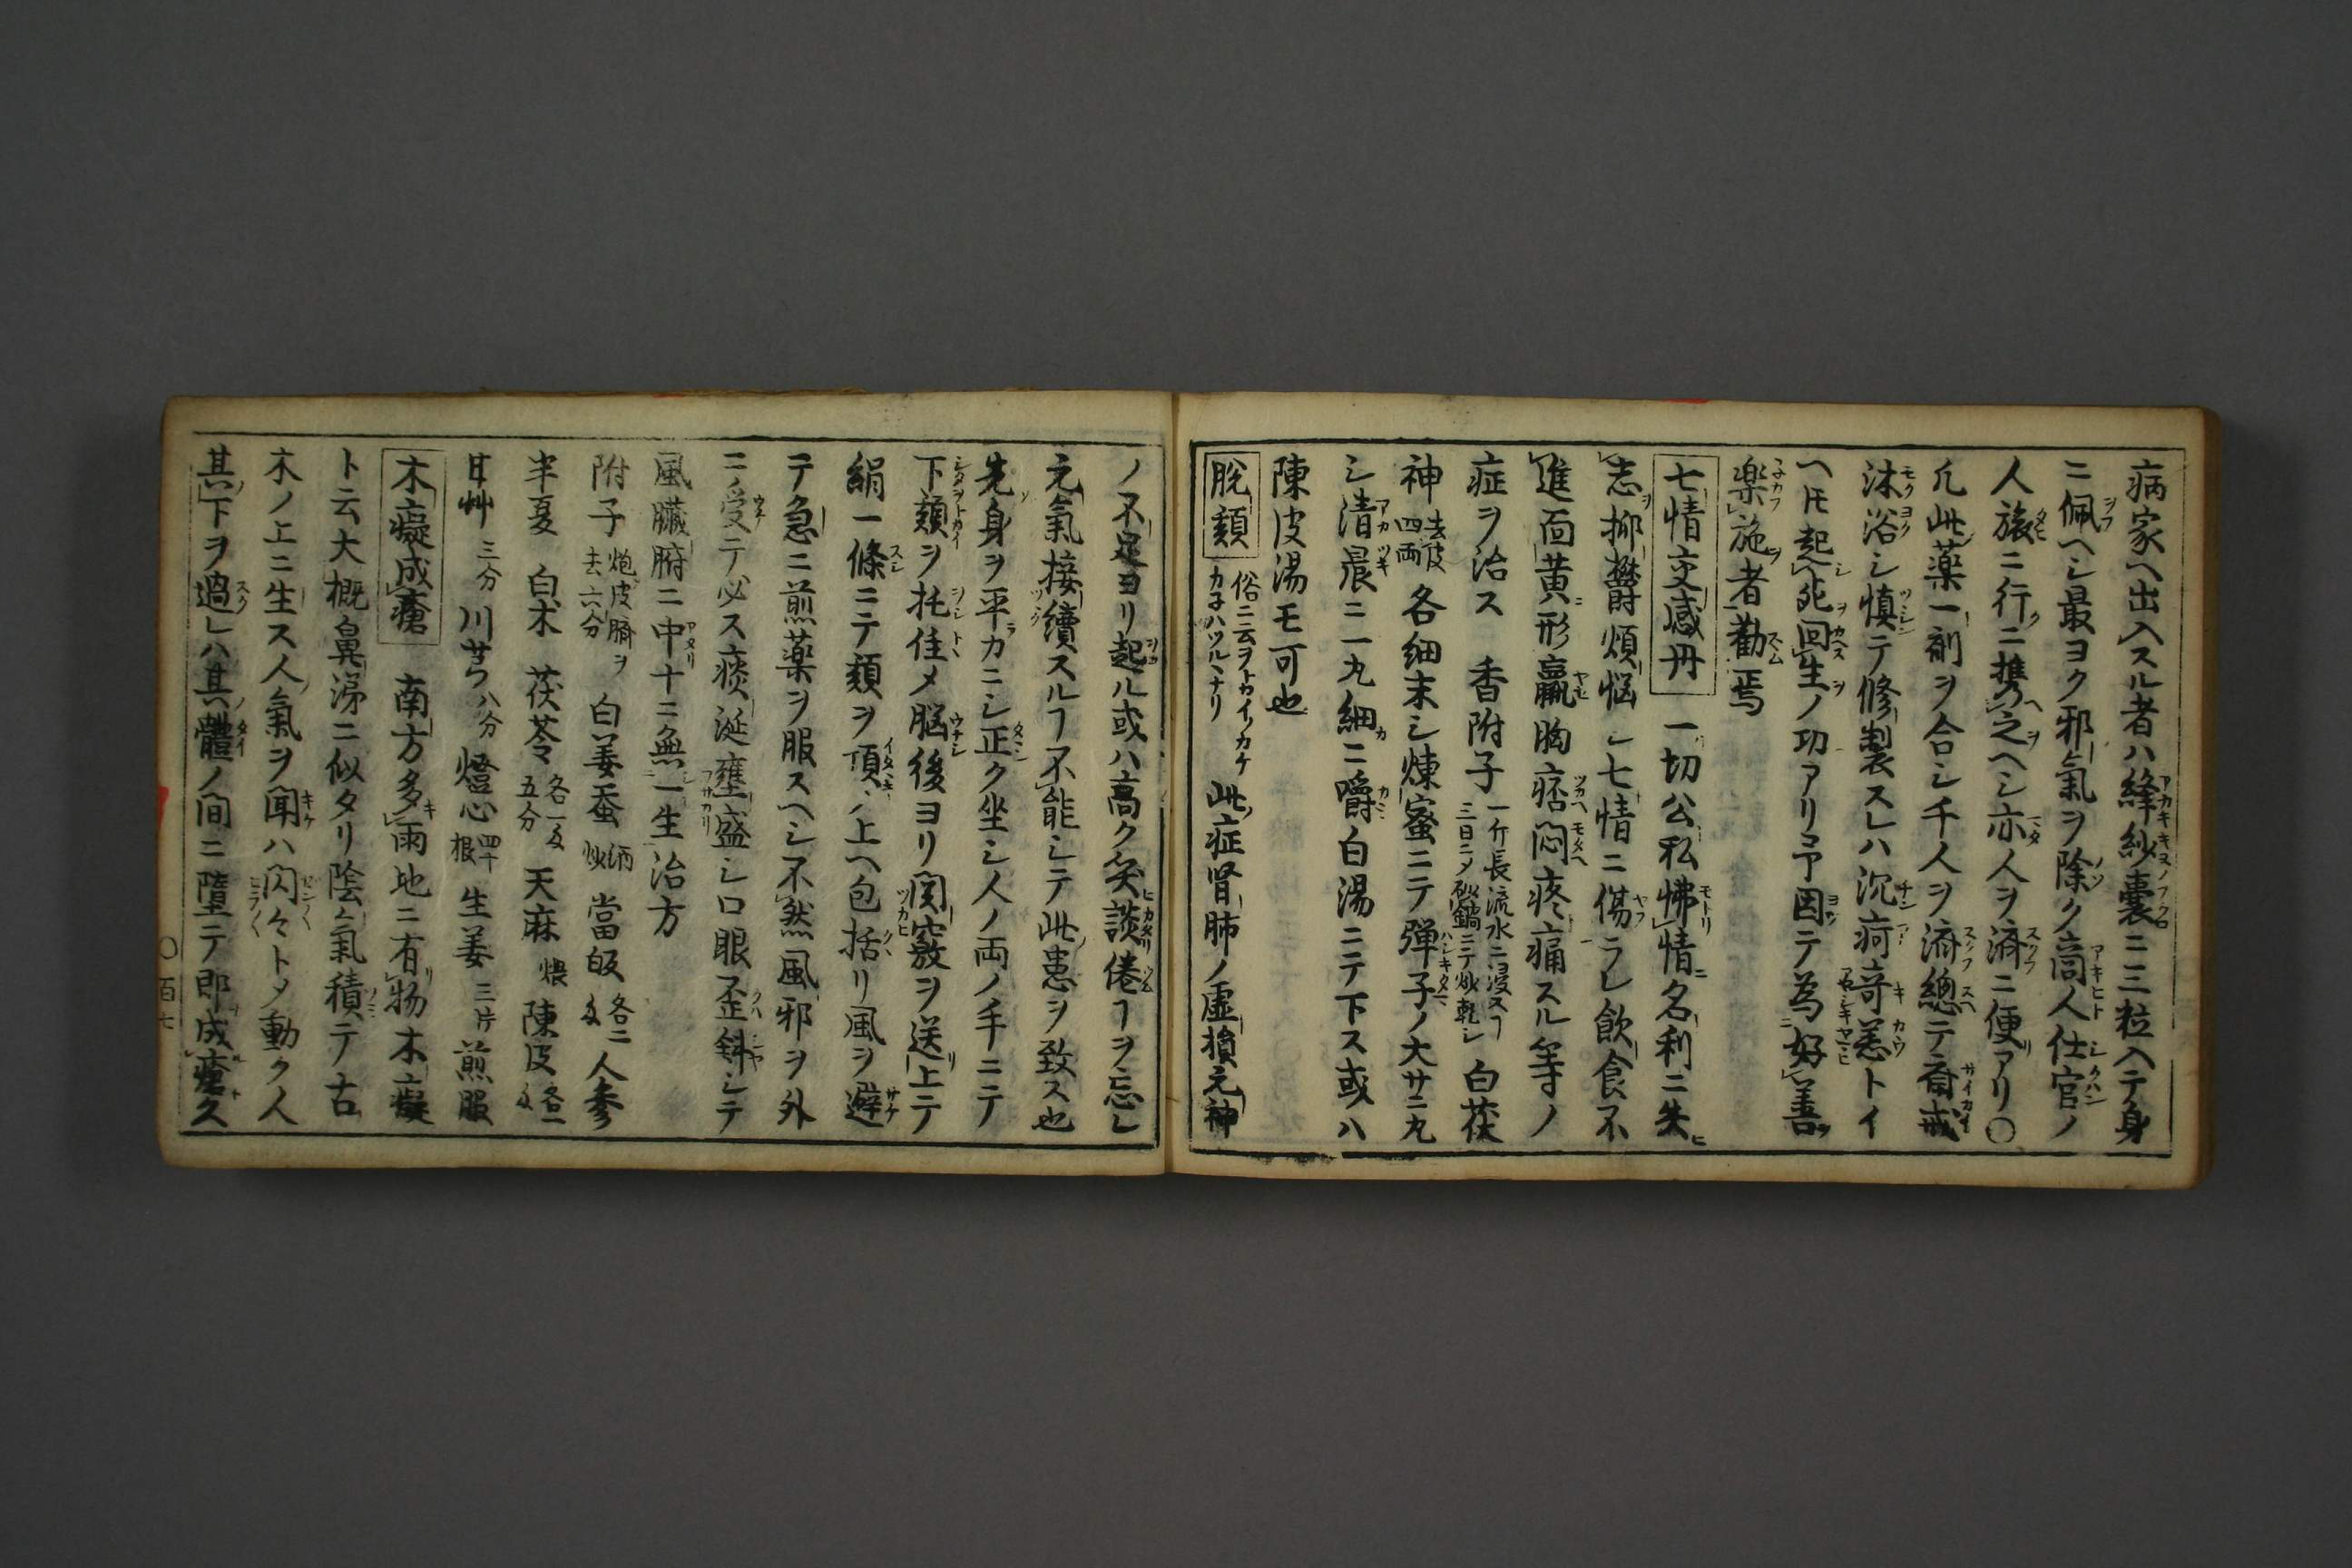 病家ヘ出入スル者ハ絳紗囊ニ三粒入テ身
ニ佩ヘシ最ヨク邪氣ヲ除ク高人仕官ノ
人旅ニ行ニ携之ヘシ亦人ヲ濟ニ便アリ〇
凢此薬一劑ヲ合シ千人ヲ濟總テ斎戒
沐浴シ慎テ修製スレハ沉痾竒恙トイ
ヘ𪜈起死回生ノ功アリ予因テ為好善
楽施者勸焉
七情交感丹 一切公私怫情名利ニ失
志抑欝煩悩シ七情ニ傷ラレ飲食不
進面黄形羸胸痞悶疼痛スル等ノ
症ヲ治ス 香附子 一斤長流水ニ浸スヿ三日ニメ砂鍋ニテ炒乾シ 白茯
神 去皮四両 各細末シ煉蜜ニテ弾子ノ大サニ丸
シ清晨ニ一丸細ニ嚼白湯ニテ下ス或ハ
陳皮湯モ可也
脱頬 俗ニ云ヲトカイノカケカネハツルヽナリ 此症腎肺ノ虚損元神
ノ不足ヨリ起ル或ハ高ク笑談倦ヿヲ忘レ
元氣接續スルヿ不能シテ此患ヲ致ス也
先身ヲ平カニシ正ク坐シ人ノ両ノ手ニテ
下頬ヲ托住メ脳後ヨリ関竅ヲ送上テ
絹一條ニテ頬ヲ頂ノ上ヘ包括リ風ヲ避
テ急ニ煎薬ヲ服スヘシ不然風邪ヲ外
ニ受テ必ス痰涎壅盛シ口眼歪斜シテ
風臓腑ニ中十ニ無一生治方
附子 炮皮臍ヲ去六分 白姜蚕 酒炒 當皈 各二匁 人参
半夏 白朮 茯苓 各一匁五分 天麻 煨 陳皮 各一匁
甘艸 三分 川芎 八分 燈心 四十根 生姜 三片 煎服
木癡成瘡 南方多雨地ニ有物木癡
ト云大概鼻涕ニ似タリ陰氣積テ古
木ノ上ニ生ス人氣ヲ聞ハ閃々トメ動ク人
其下ヲ過レハ其體ノ間ニ墮テ即成瘡久
〇百七